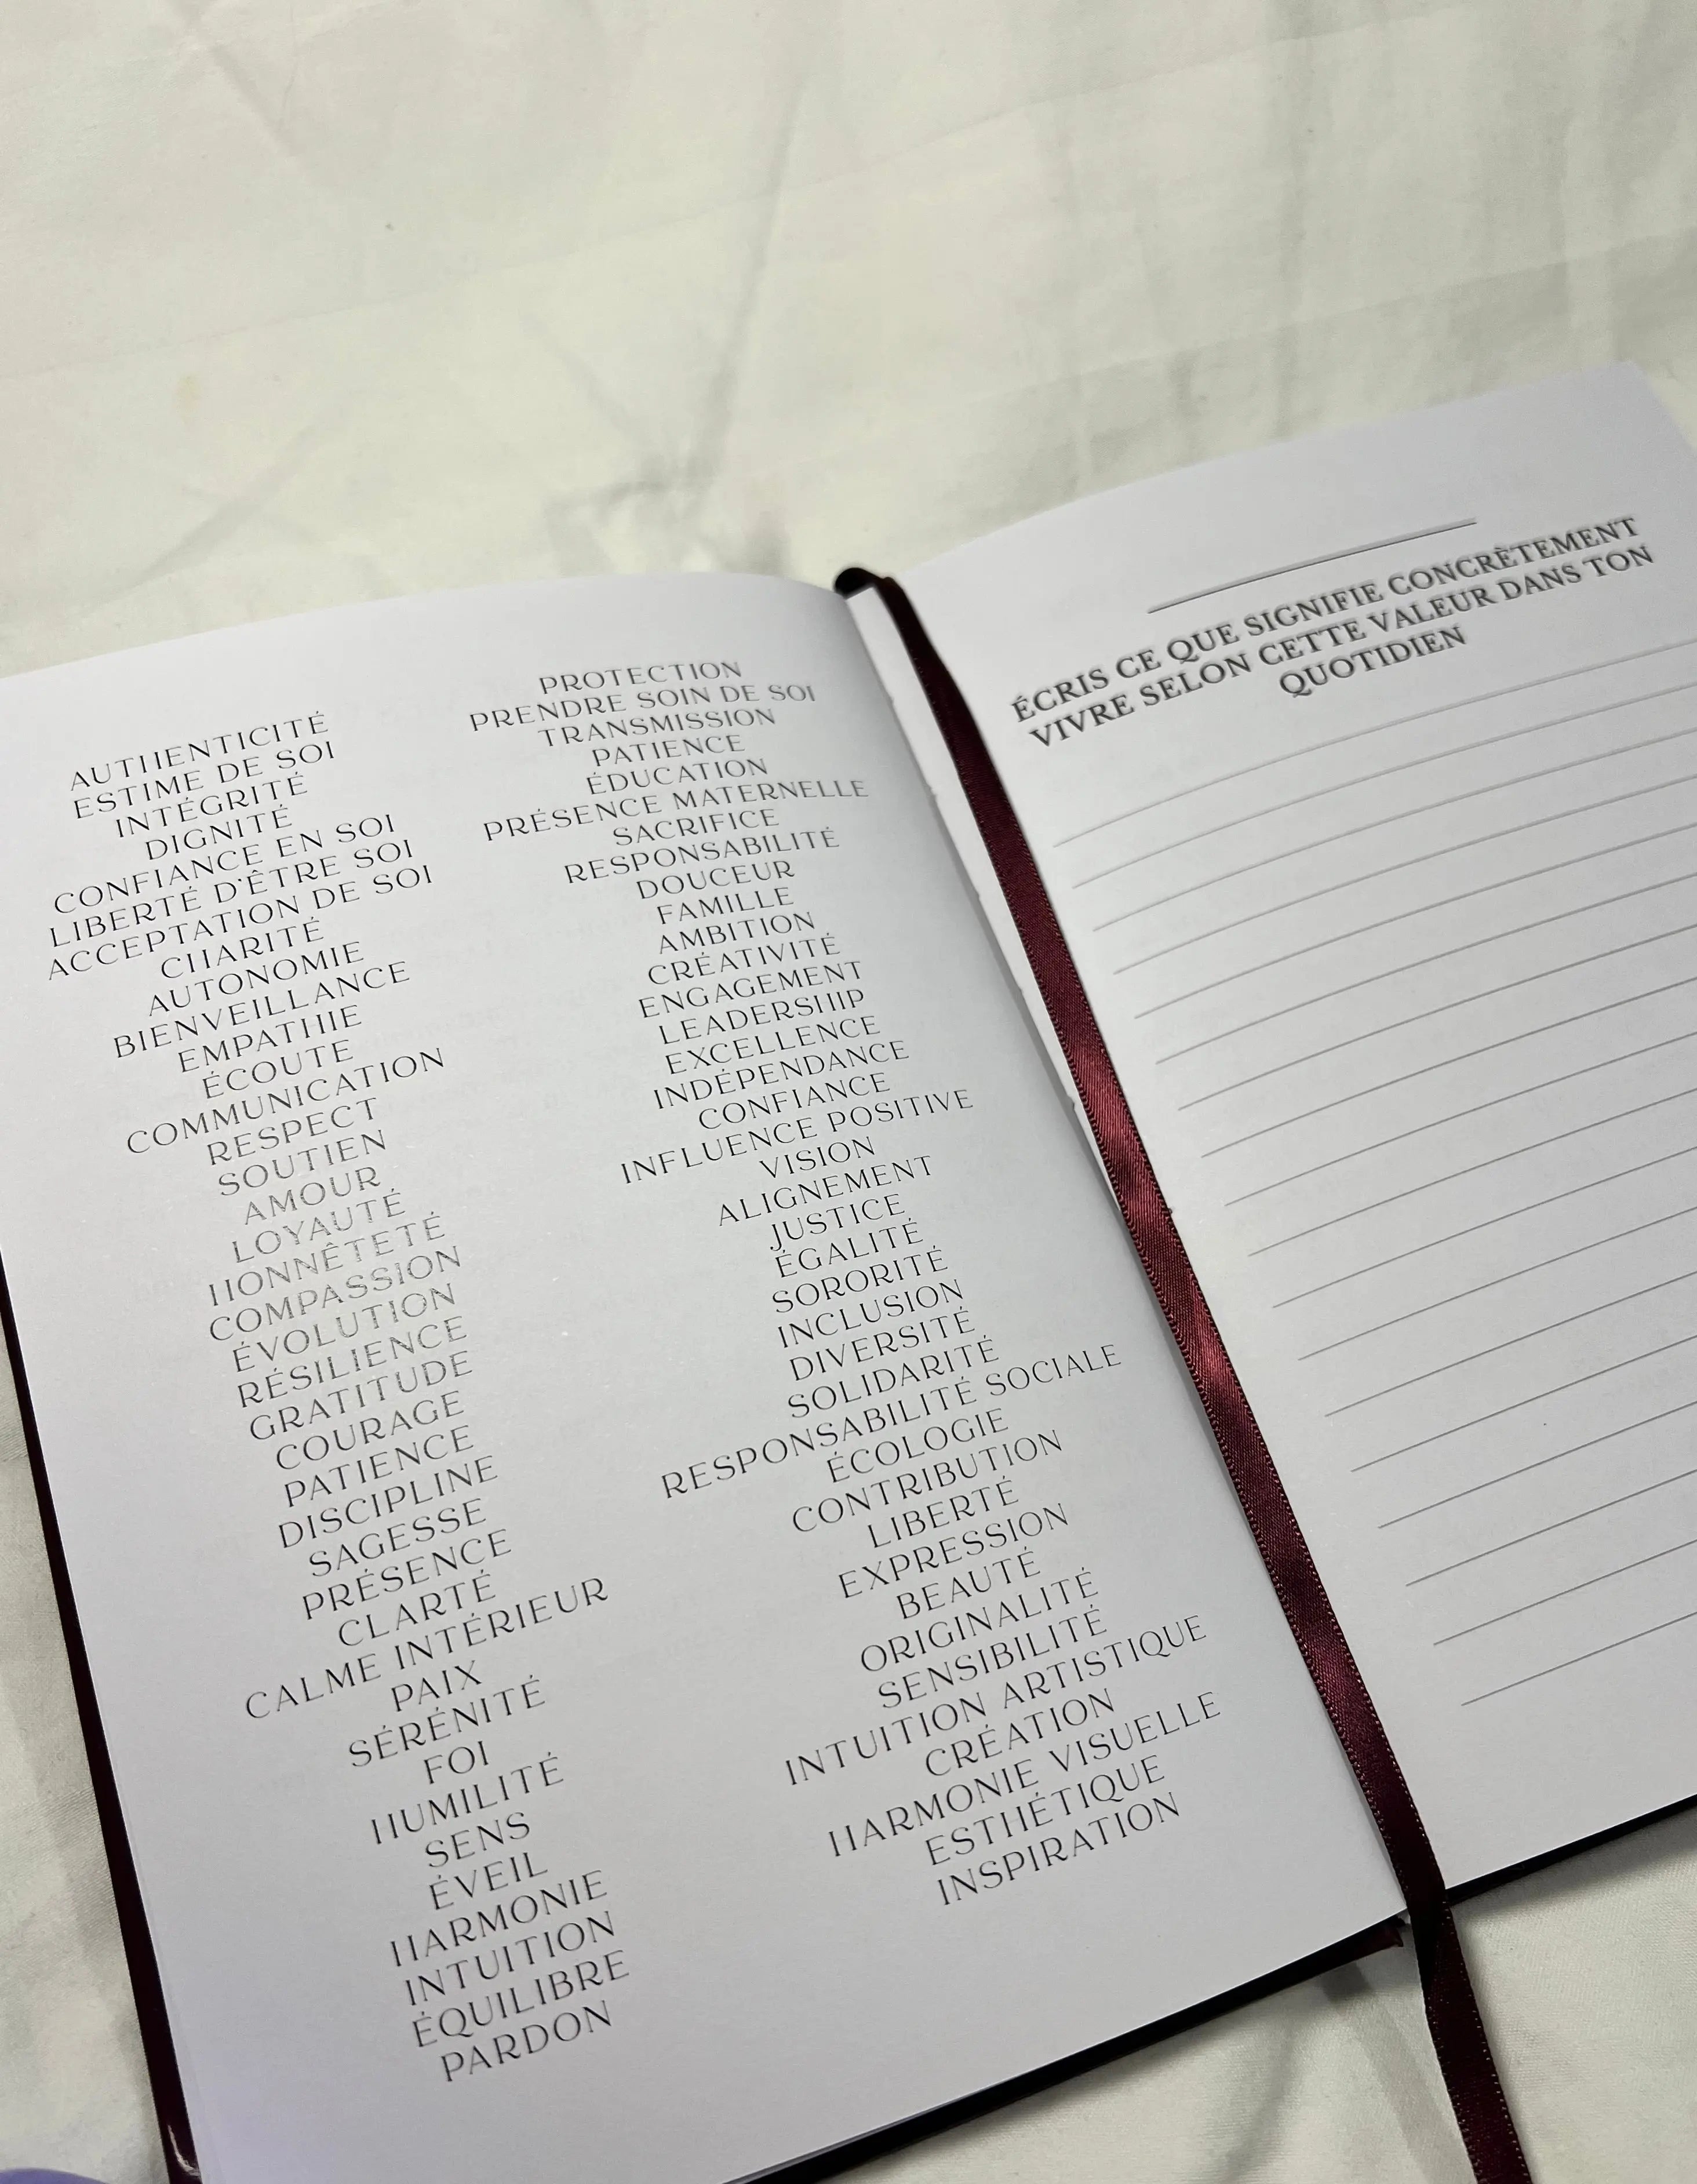 AUTHENTICITÉ
ESTIME DE SOI
INTÉGRITÉ
DIGNITÉ
CONFIANCE EN SOI
LIBERTÉ D'ÊTRE SOI
ACCEPTATION DE SOI
CHARITÉ
AUTONOMIE
BIENVEILLANCE
EMPATHIE
ÉCOUTE
COMMUNICATION
RESPECT
SOUTIEN
AMOUR
LOYAUTÉ
HONNÊTETÉ
COMPASSION
ÉVOLUTION
RÉSILIENCE
GRATITUDE
COURAGE
PATIENCE
DISCIPLINE
SAGESSE
PRÉSENCE
CLARTÉ
CALME INTÉRIEUR
PAIX
SÉRÉNITÉ
FOI
HUMILITÉ
SENS
ÉVEIL
HARMONIE
INTUITION
ÉQUILIBRE
PARDON
PROTECTION
PRENDRE SOIN DE SOI
TRANSMISSION
PATIENCE
ÉDUCATION
PRÉSENCE MATERNELLE
SACRIFICE
RESPONSABILITÉ
DOUCEUR
FAMILLE
AMBITION
CRÉATIVITÉ
ENGAGEMENT
LEADERSHIP
EXCELLENCE
INDÉPENDANCE
CONFIANCE
INFLUENCE POSITIVE
VISION
ALIGNEMENT
JUSTICE
ÉGALITÉ
SORORITÉ
INCLUSION
DIVERSITÉ
SOLIDARITÉ
RESPONSABILITÉ SOCIALE
ÉCOLOGIE
CONTRIBUTION
LIBERTÉ
EXPRESSION
BEAUTÉ
ORIGINALITÉ
SENSIBILITÉ
INTUITION ARTISTIQUE
CRÉATION
HARMONIE VISUELLE
ESTHÉTIQUE
INSPIRATION
ÉCRIS CE QUE SIGNIFIE CONCRÈTEMENT
VIVRE SELON CETTE VALEUR DANS TON
QUOTIDIEN